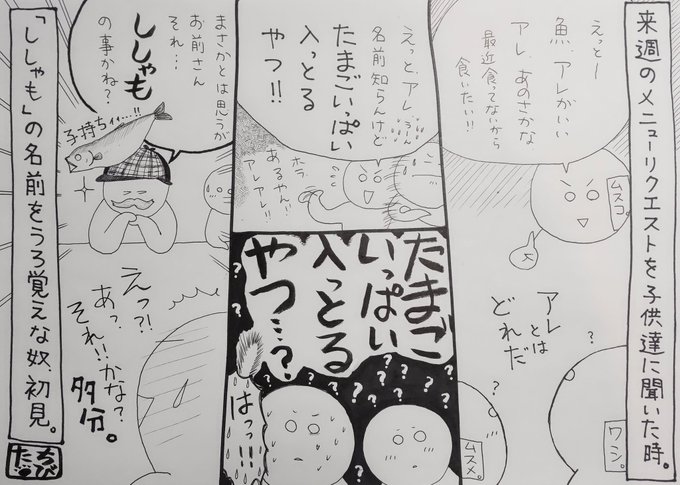 来週のメニューリクエストを子供達に聞いた時。
えっとー
魚、アレがいい
アレ、あのさかな
最近食ってないから
食いたい!!
ムスコ。
アレ
とは
どれだ
?
ムスメ。
ワシ。
えっと、アレ
名前知らんけど
たまごいっぱい
入っとる
やつ!!
ホラ
あるやん!!
アレアレ!!
たまご
いっぱい
入っとる
やつ…?
はっっ!!
まさかとは思うが
お前さん
それ…
ししゃも
の事かね?
子持ちィィ…!!
えっ?!
あっ?
それ!!かな?
多分。
「ししゃも」の名前をうろ覚えな奴、初見。